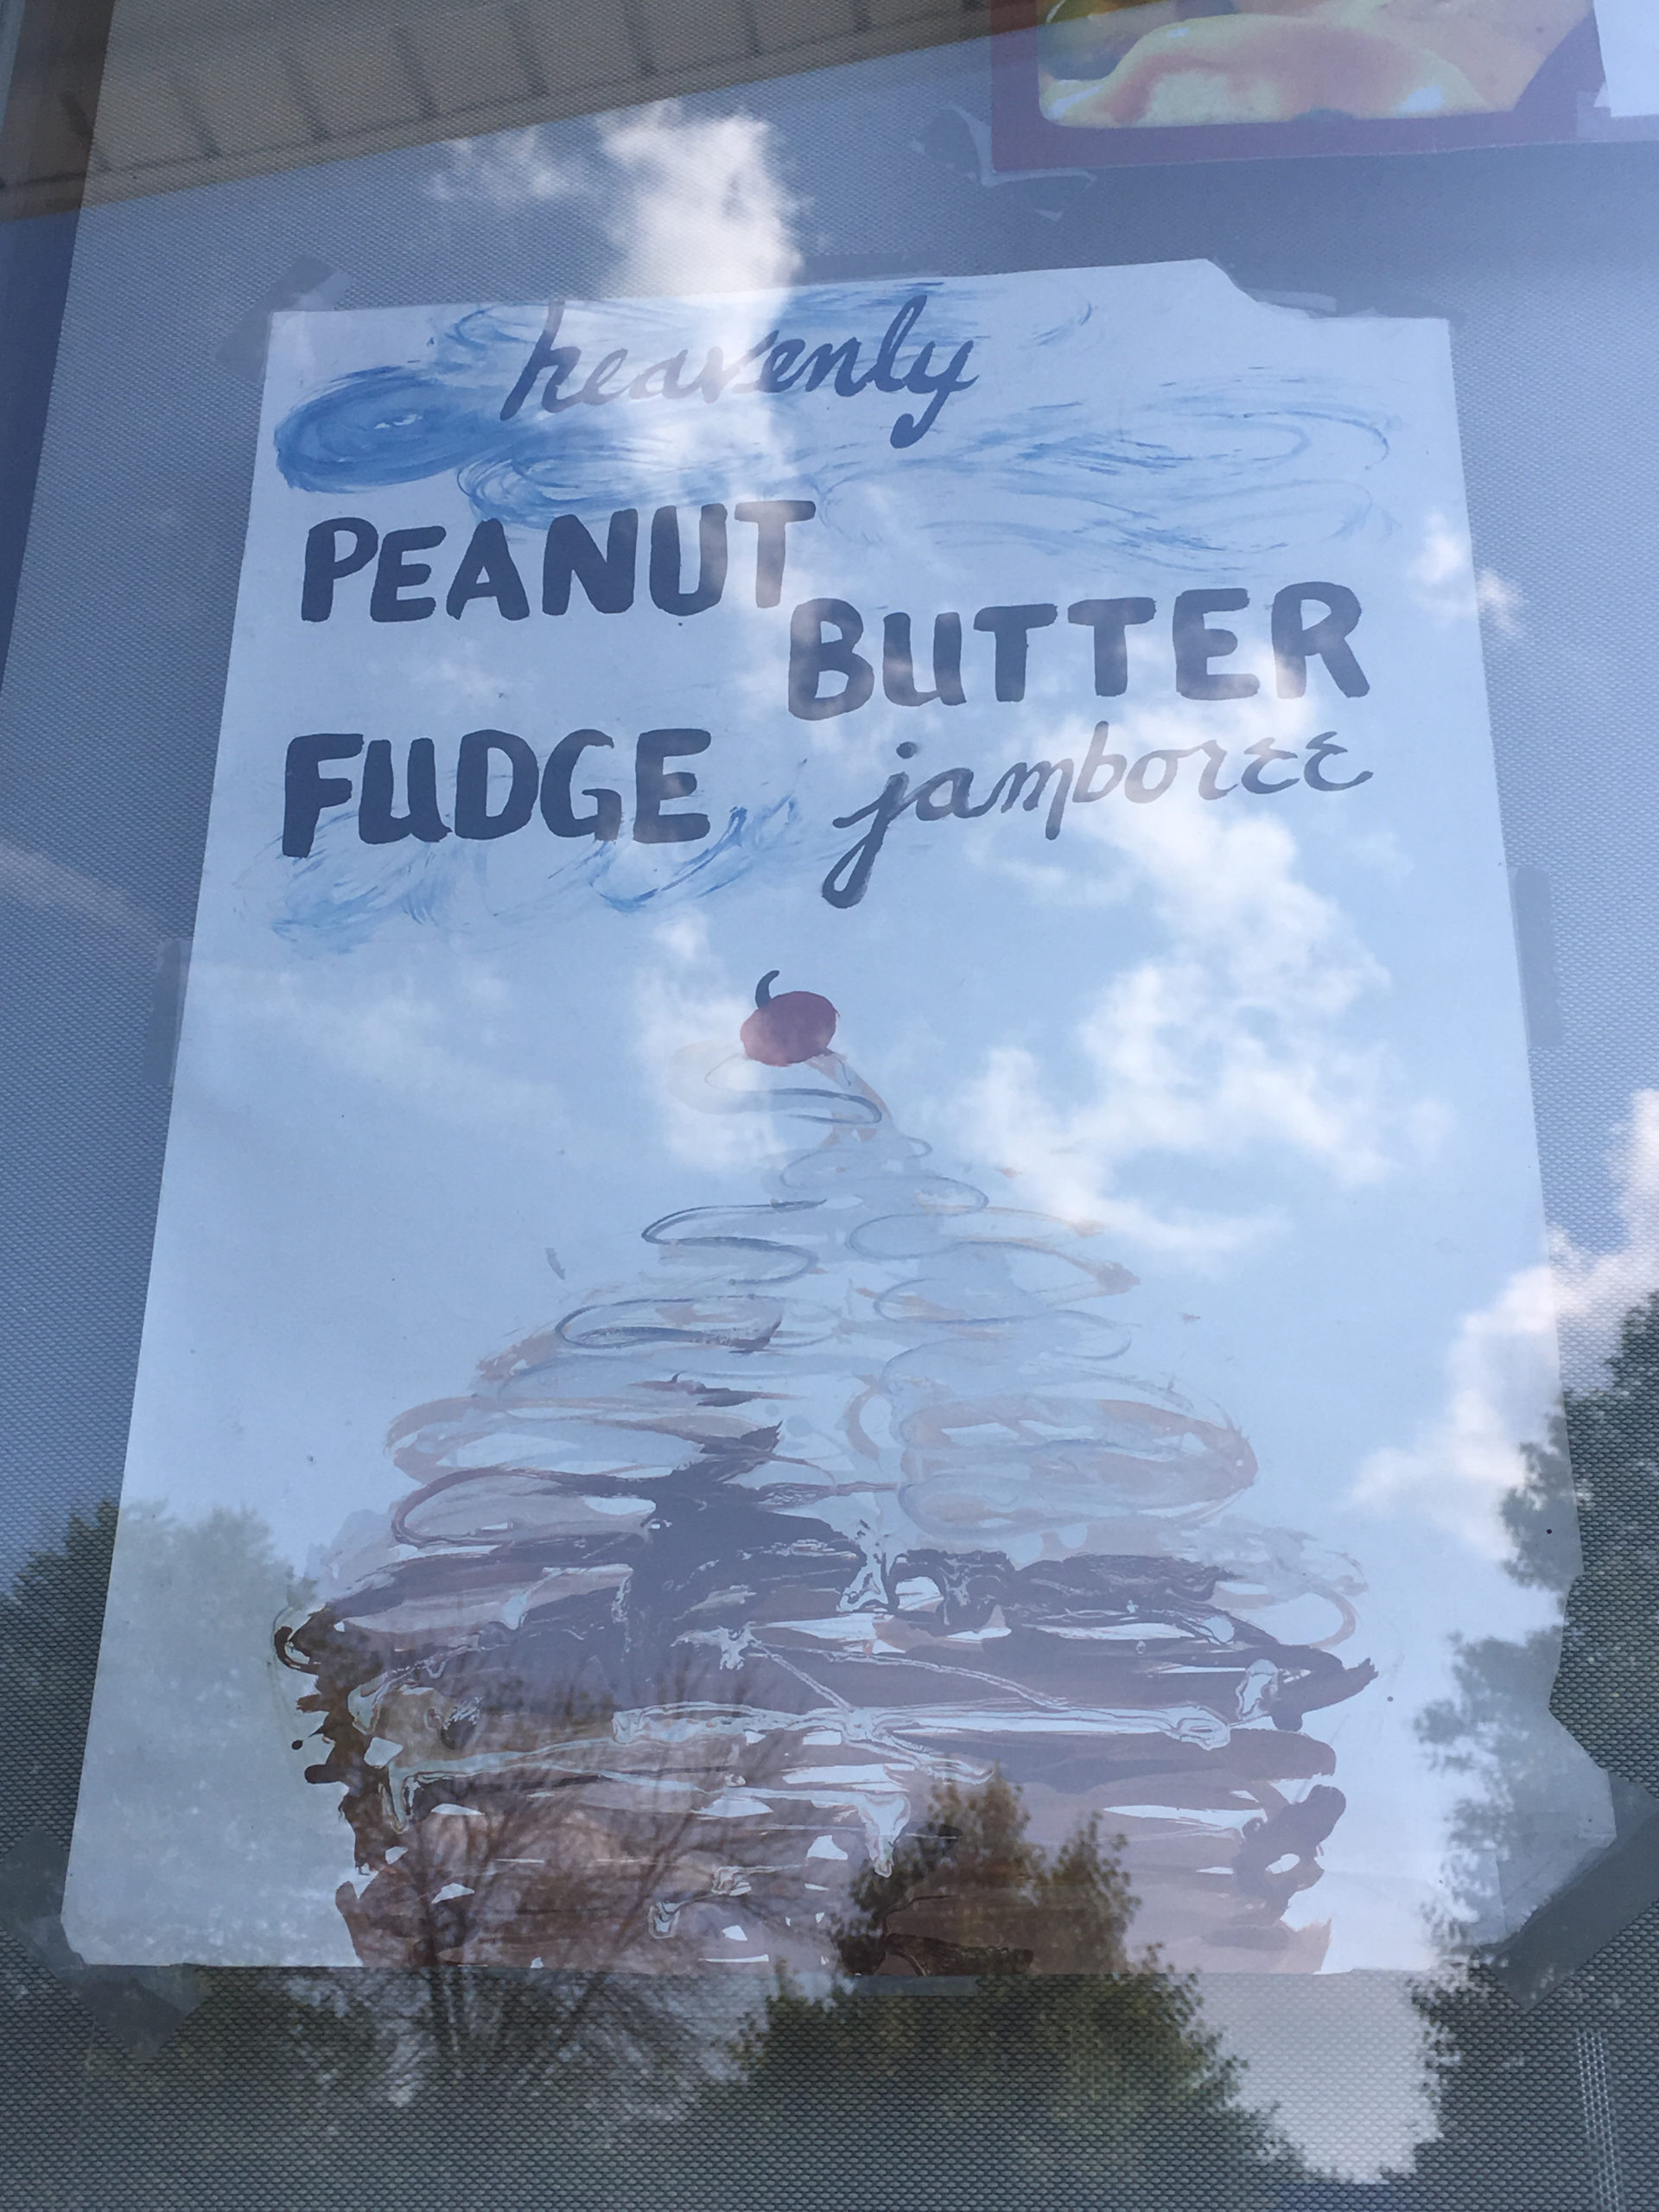 heavenly
PEANUT
BUTTER
FUDGE jamboree